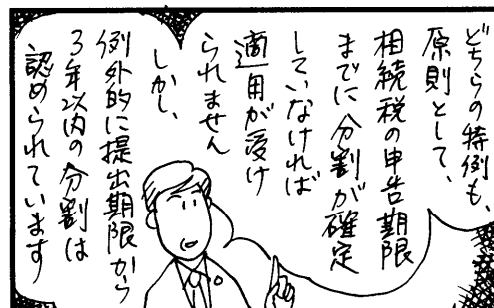 どちらの特例も、
原則として、
相続税の申告期限
までに分割が確定
していなければ
適用が受け
られません
しかし、
例外的に提出期限から
3年以内の分割は
認められています